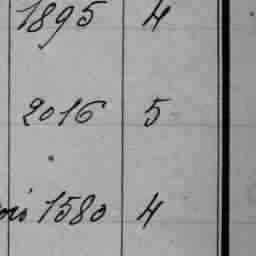 1895 4
2016 5
1580 4